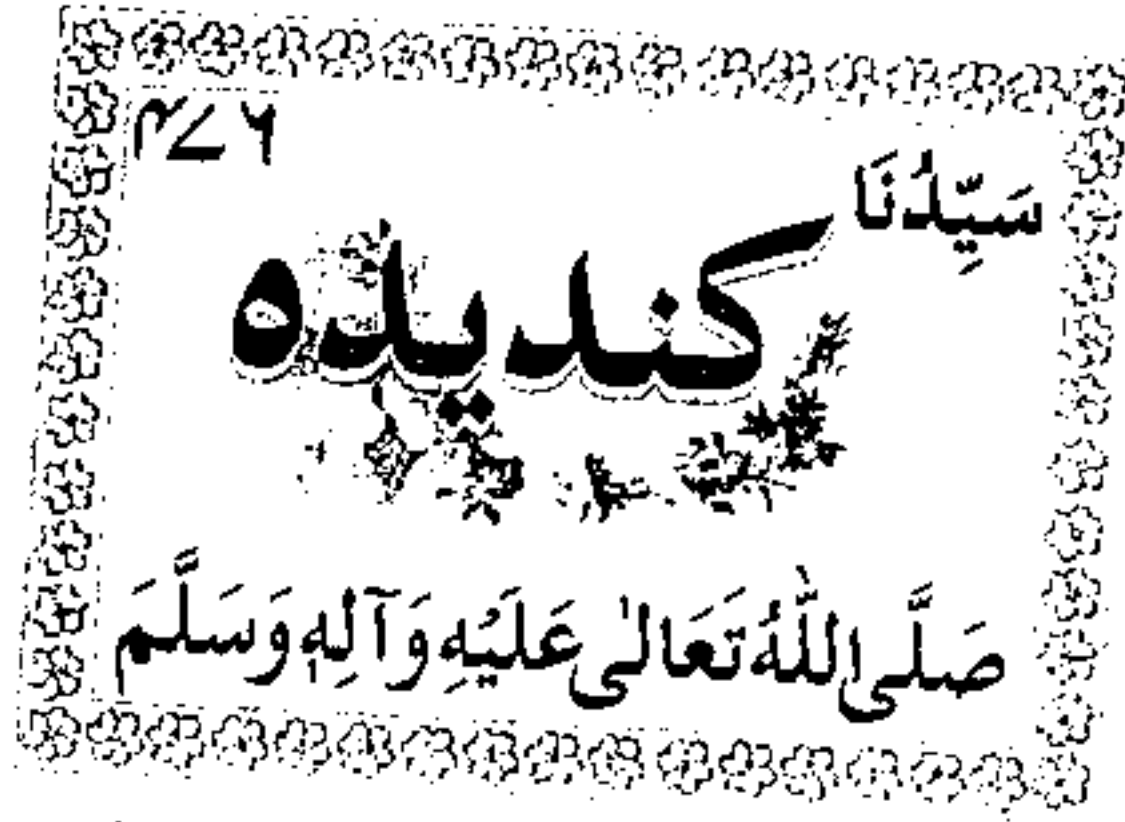 ۴۷۶
سَیِّدُنَا
کندیدہ
صَلَّی اللّٰهُ تَعَالٰی عَلَیْهِ وَ آلِهٖ وَسَلَّمَ